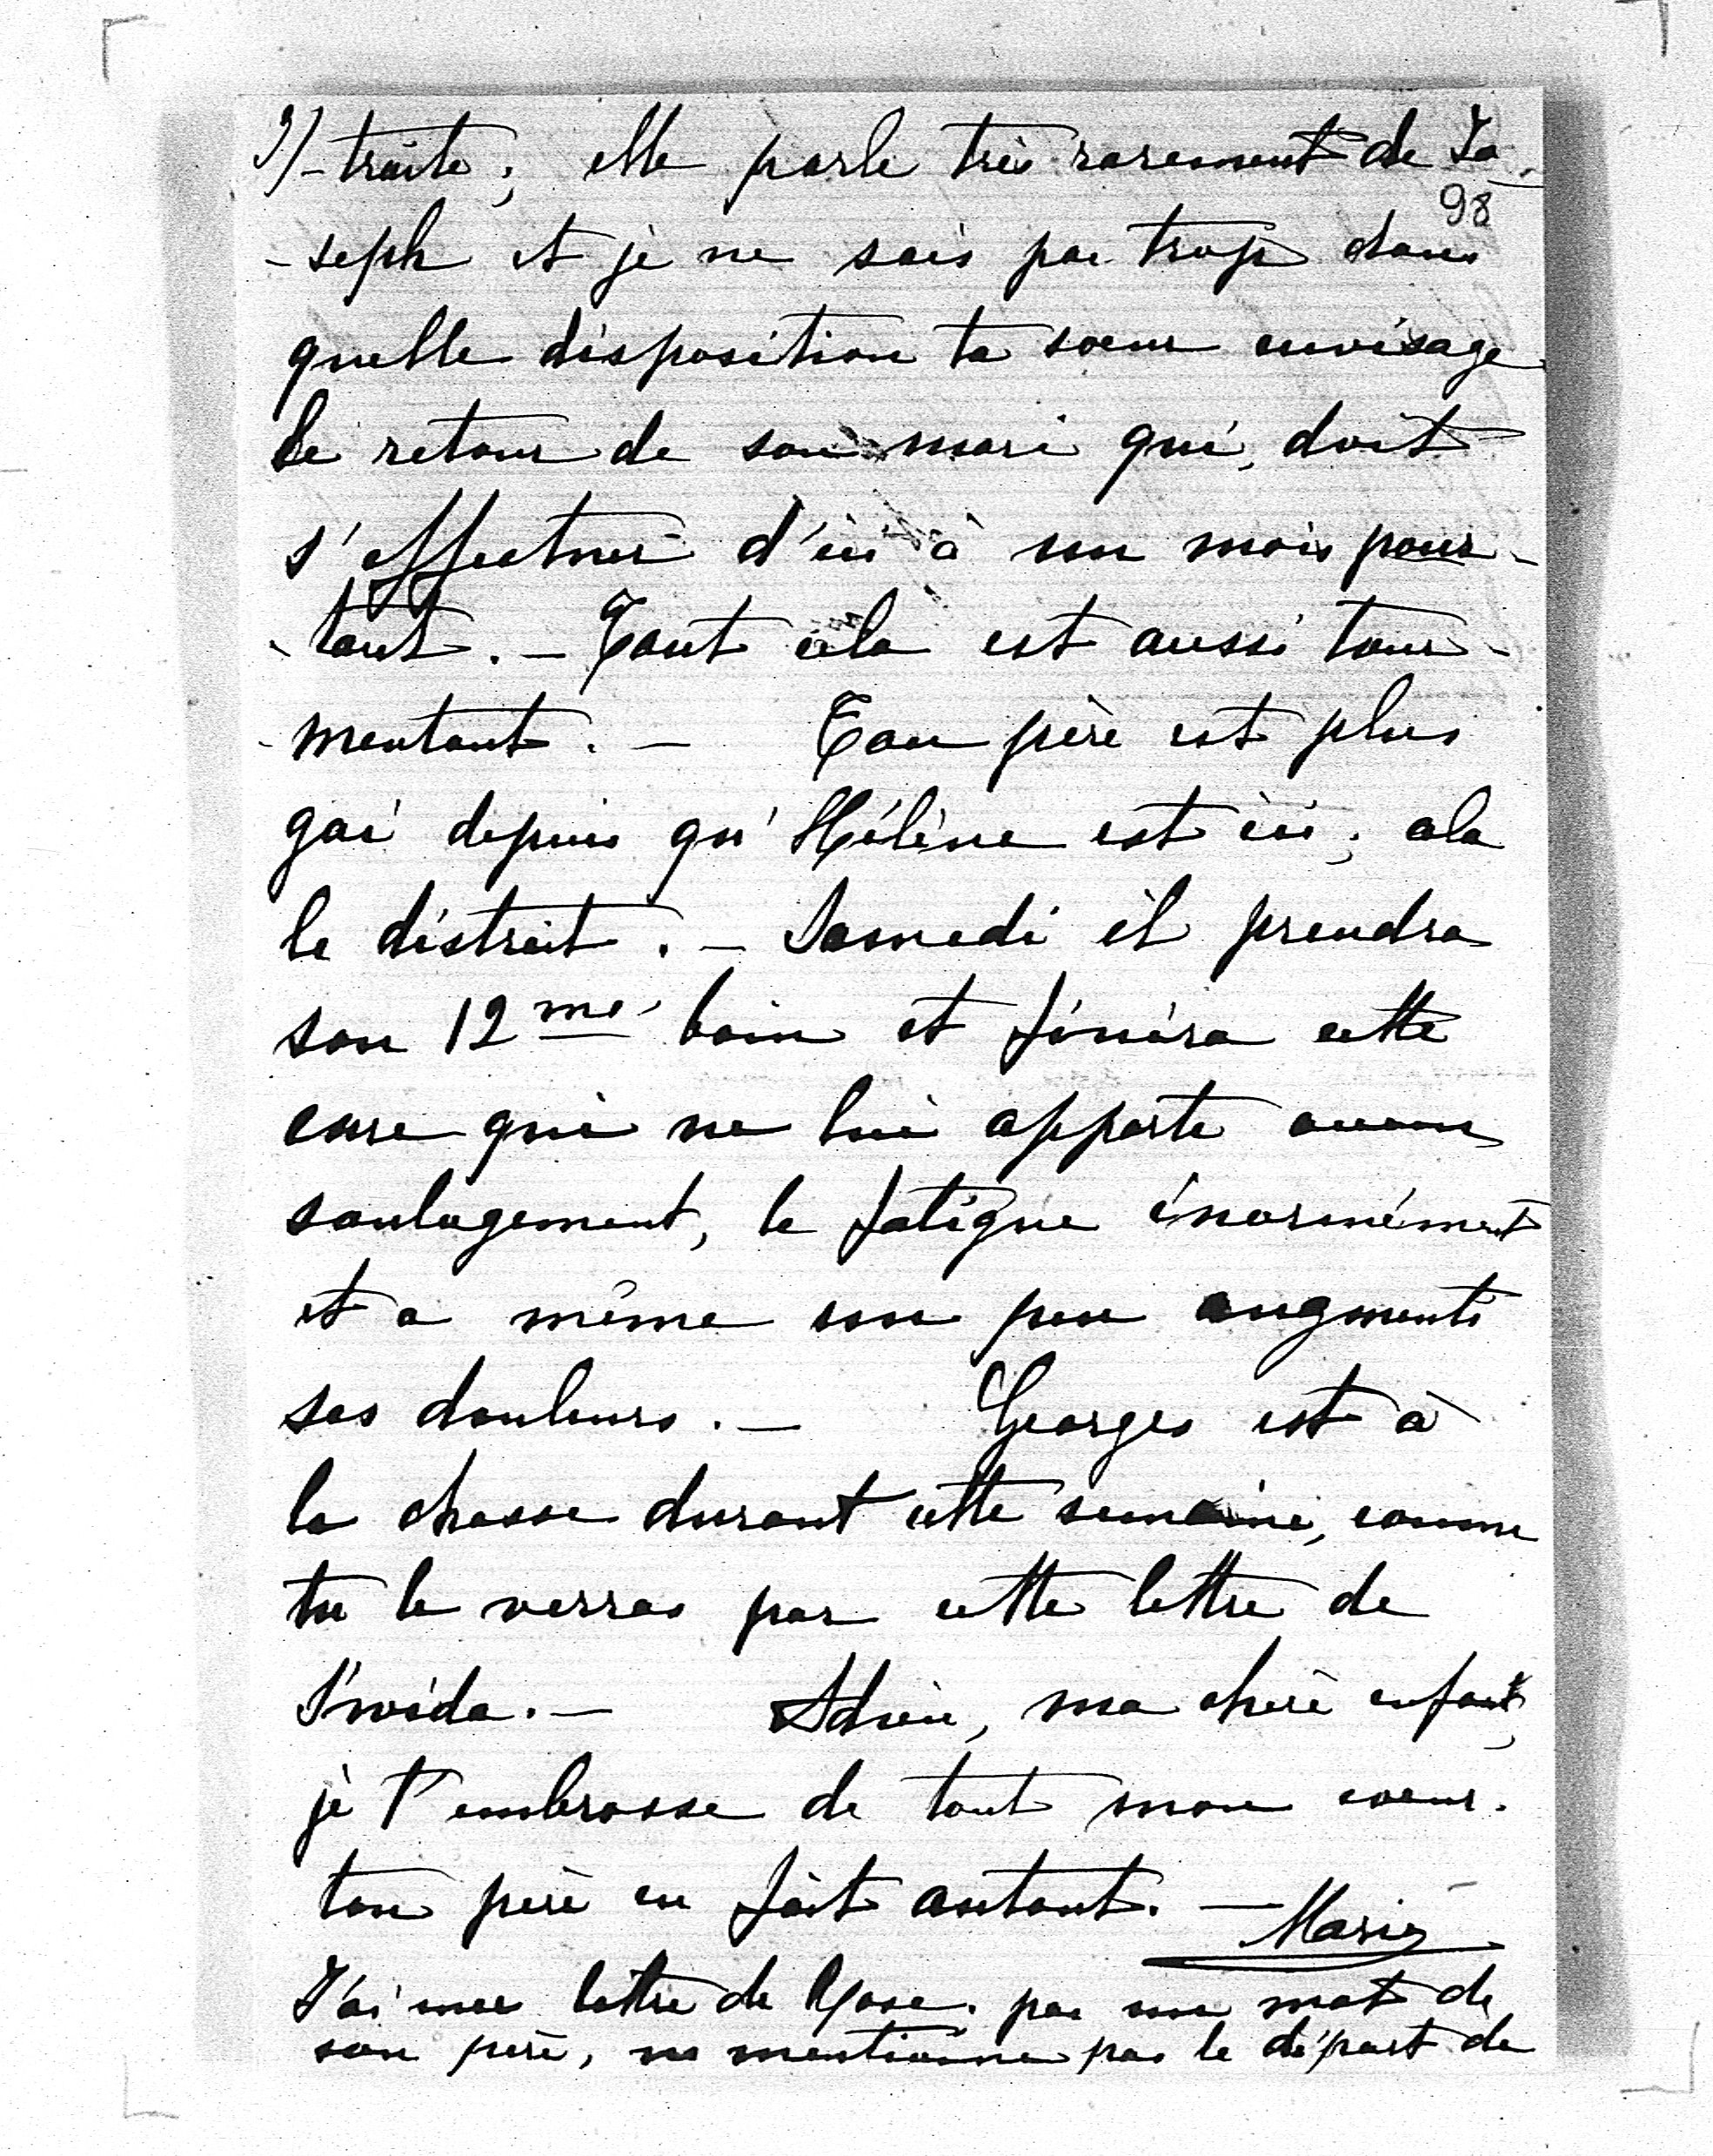 3)-traite; elle parle très rarement de Jo-
98
-seph et je ne sais pas trop dans
quelle disposition ta soeur envisage
le retour de son mari qui, doit
s'effectuer d'ici à un mois pour-
-tant. - Tout cela est aussi tour-
-mentant. - Ton père est plus
gai depuis qu'Hélène est ici; cela
le distrait. - Samedi il prendra
son 12me bain et finira cette
cure qui ne lui apporte aucun
soulagement, le fatigue énormément
et a même un peu augmenté
ses douleurs. - Georges est à
la chasse durant cette semaine, comme
tu le verras par cette lettre de
Adieu, ma chère enfant,
je t'embrasse de tout mon coeur.
ton père en fait autant. - Marie
J'ai une lettre de pas un mot de
son père, ne mentionne pas le départ de